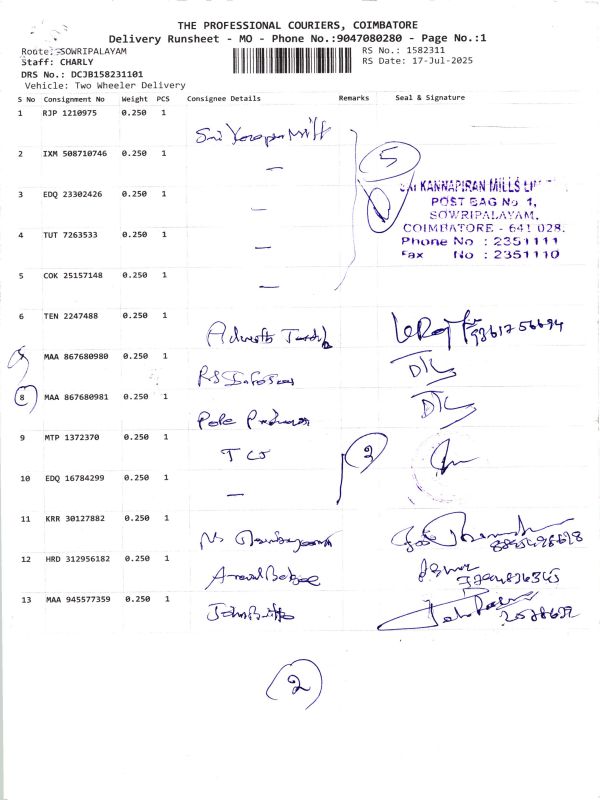 THE PROFESSIONAL COURIERS, COIMBATORE
Delivery Runsheet - MO - Phone No.:9047080280 - Page No.:1
Route: SOWRIPALAYAM
RS No.: 1582311
Staff: CHARLY
RS Date: 17-Jul-2025
DRS No.: DCJB158231101
Vehicle: Two Wheeler Delivery
S No Consignment No Weight PCS Consignee Details Remarks Seal & Signature
1 RJP 1210975 0.250 1
2 IXM 508710746 0.250 1 —
5
3 EDQ 23302426 0.250 1 —
SAI KANNAPIRAN MILLS
POST BAG No 1,
SOWRIPALAYAM,
COIMBATORE - 641 028.
Phone No : 2351111
Fax No : 2351110
4 TUT 7263533 0.250 1 —
5 COK 25157148 0.250 1 —
6 TEN 2247488 0.250 1
MAA 867680980 0.250 1
8 MAA 867680981 0.250 1
9 MTP 1372370 0.250 1
10 EDQ 16784299 0.250 1 —
11 KRR 30127882 0.250 1
12 HRD 312956182 0.250 1
13 MAA 945577359 0.250 1
John Britto
2